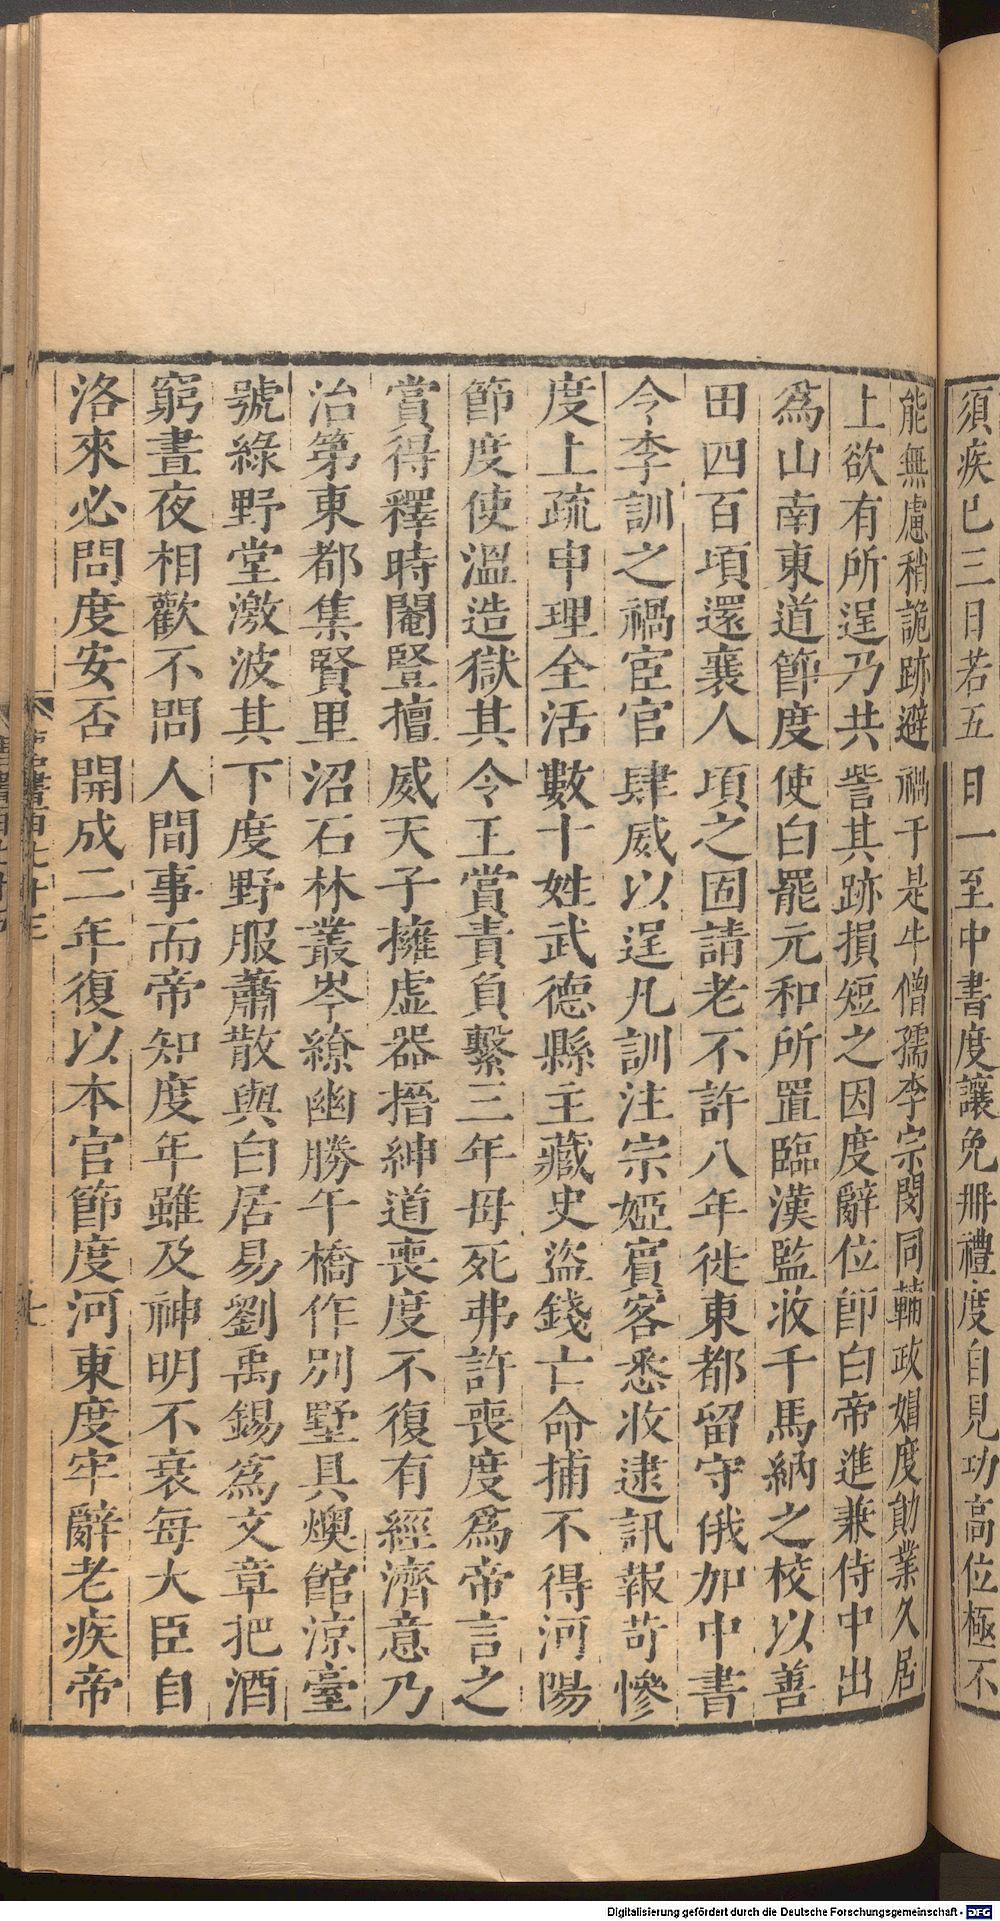 須疾已三日若五日一至中書度讓免冊禮度自見功高位極不
能無慮稍詭跡避禍于是牛僧孺李宗閔同輔政娼度勛業久居
上欲有所逞乃共訾其跡損短之因度辭位卽白帝進兼侍中出
爲山南東道節度使白罷元和所置臨漢監收千馬納之校以善
田四百頃還襄人頃之固請老不許八年徙東都留守俄加中書
令李訓之禍宦官肆威以逞凡訓注宗婭賓客悉收逮訊報苛慘
度上疏申理全活數十姓武德縣主藏史盜錢亡命捕不得河陽
節度使溫造獄其令王賞責負繫三年母死弗許喪度爲帝言之
賞得釋時閹豎擅威天子擁虛器搢紳道喪度不復有經濟意乃
治第東都集賢里沼石林叢岑繚幽勝午橋作別墅具燠館涼臺
號綠野堂激波其下度野服蕭散與白居易劉禹錫爲文章把酒
窮晝夜相歡不問人間事而帝知度年雖及神明不衰每大臣自
洛來必問度安否開成二年復以本官節度河東度牢辭老疾帝
Digitalisierung gefördert durch die Deutsche Forschungsgemeinschaft - DFG